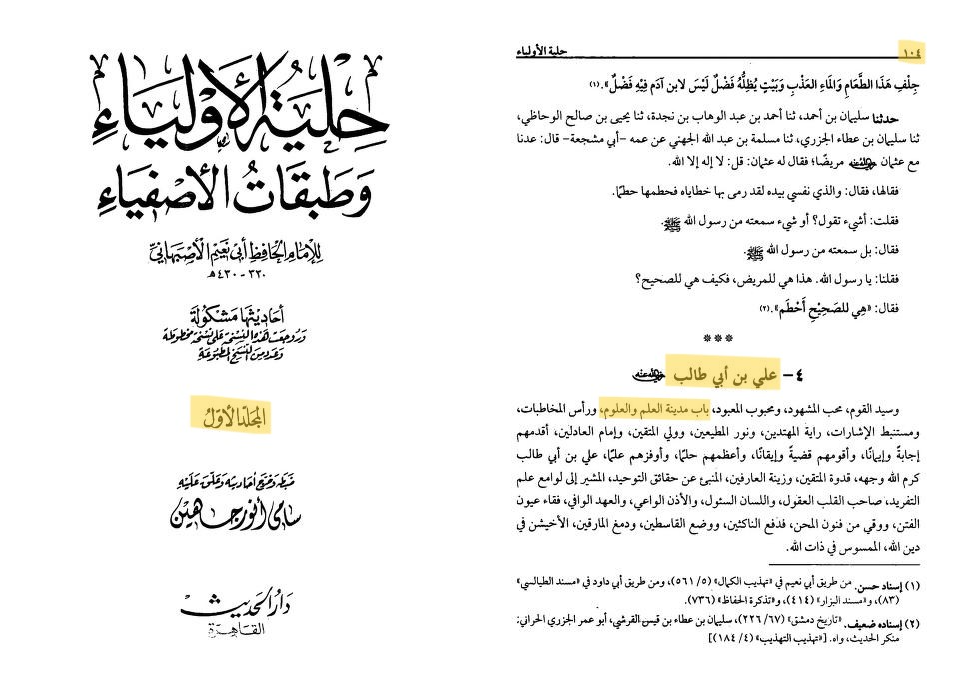 حلية الأولياء
وطبقات الأصفياء
للإمام الحافظ أبي نعيم الأصبهاني
٣٢٠ - ٤٣٠ هـ
أحاديثها مشكولة
وروجعت هذه النسخة على نسخة مخطوطة
وعدد من النسخ المطبوعة
المجلد الأول
ضبط وخرج أحاديثه وعلق عليه
سامي أنور جاهين
دار الحديث
القاهرة
١٠٤
حلية الأولياء
جِلْفِ هَذَا الطَّعَامِ وَالمَاءِ العَذْبِ وَبَيْتٍ يُظِلُّهُ فَضْلٌ لَيْسَ لابن آدَمَ فِيْهِ فَضْلٌ».(١)
حدثنا سليمان بن أحمد، ثنا أحمد بن عبد الوهاب بن نجدة، ثنا يحيى بن صالح الوحاظي،
ثنا سليمان بن عطاء الجزري، ثنا مسلمة بن عبد الله الجهني عن عمه -أبي مشجعة- قال: عدنا
مع عثمان رضي الله عنه مريضًا؛ فقال له عثمان: قل: لا إله إلا الله.
فقالها، فقال: والذي نفسي بيده لقد رمى بها خطاياه فحطمها حطمًا.
فقلت: أشيء تقول؟ أو شيء سمعته من رسول الله ﷺ.
فقال: بل سمعته من رسول الله ﷺ.
فقلنا: يا رسول الله. هذا هي للمريض، فكيف هي للصحيح؟
فقال: «هِي للصَحِيْحِ أَحْطَم».(٢)
***
٤- علي بن أبي طالب رضي الله عنه
وسيد القوم، محب المشهود، ومحبوب المعبود، باب مدينة العلم والعلوم، ورأس المخاطبات،
ومستنبط الإشارات، راية المهتدين، ونور المطيعين، وولي المتقين، وإمام العادلين، أقدمهم
إجابةً وإيمانًا، وأقومهم قضيةً وإيقانًا، وأعظمهم حلمًا، وأوفزهم علمًا، علي بن أبي طالب
كرم الله وجهه، قدوة المتقين، وزينة العارفين، المنبئ عن حقائق التوحيد، المشير إلى لوامع علم
التفريد، صاحب القلب العقول، واللسان السئول، والأذن الواعي، والعهد الوافي، فقاء عيون
الفتن، ووقي من فنون المحن، فدفع الناكثين، ووضع القاسطين، ودمغ المارقين، الأخيشن في
دين الله، الممسوس في ذات الله.
(١) إسناد حسن. من طريق أبي نعيم في «تهذيب الكمال» (٥/ ٥٦١)، ومن طريق أبي داود في «مسند الطيالسي»
(٨٣)، و«مسند البزار» (٤١٤)، و«تذكرة الحفاظ» (٧٣٦).
(٢) إسناده ضعيف. «تاريخ دمشق» (٦٧/ ٢٢٦)، سليمان بن عطاء بن قيس القرشي، أبو عمر الجزري الحراني:
منكر الحديث، واه. [«تهذيب التهذيب» (٤/ ١٨٤)]